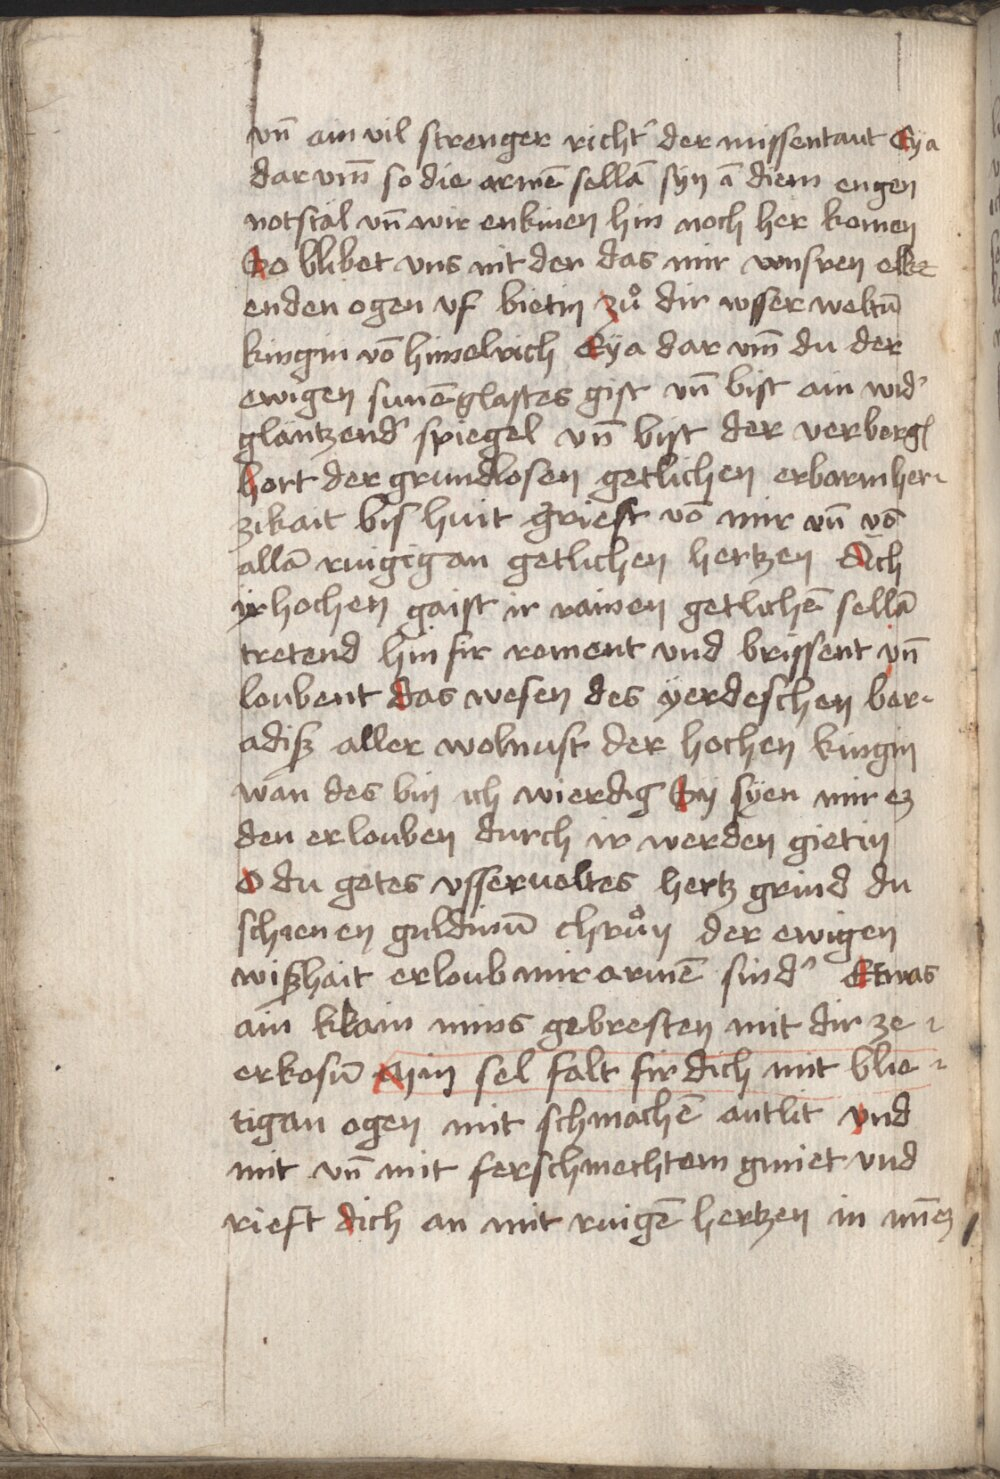 vn̄ ain vil strenger richt' der missentaut Eya
dar vm̄ so die armē sellā syn ī diem engen
notstal vn̄ wir enkinen hin noch her komen
So blibet vns nit den das mir vnnsren elle
enden ogen vf bietin zů dir vsserweltū
kingin vō himelrich Eÿa dar vm̄ du der
ewigen sunēglastes gist vn̄ bist ain wid'
glantzend' spiegel vn̄ bist der verbergē
hort der grundlosen getlichen erbarmher-
zikait bis huit griest vō mir vn̄ vō
allā ruigigan getlichen hertzen Ach
ir hochen gaist ir rainen getlichē sellā
tretend hin fir roment vnd brissent vn̄
loubent das wesen des yerdeschen ber-
adiß aller wolnust der hochen kingin
wan des bin ich wierdig Sy syen mir ez
den erlouben durch ir werden gietin
O du gotes vsservoltes hertz grind du
schienen guldinū chrůn der ewigen
wißhait erloub mir armē sind' Etwas
ain klain mins gebresten mit dir ze -
erkosū Min sel falt fir dich mit blie -
tigan ogen mit schmachē antlit vnd
mit vn̄ mit ferschmechtem gmiet vnd
rieft dich an mit ruigē hertzen in